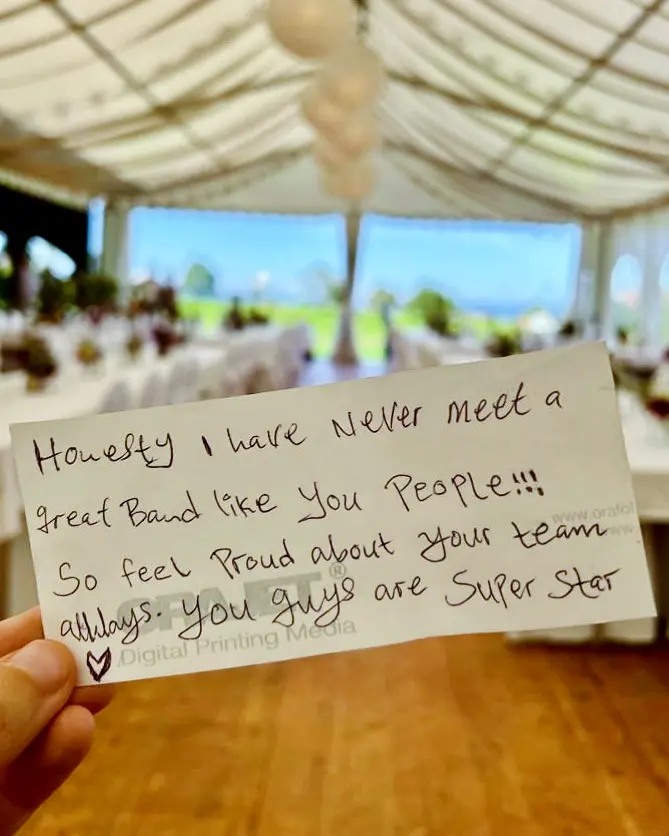 Honesty I have Never meet a
great Band like You People!!!
So feel Proud about Your team
always. You guys are Super Star
www.orafol
www
ORAJET®
Digital Printing Media